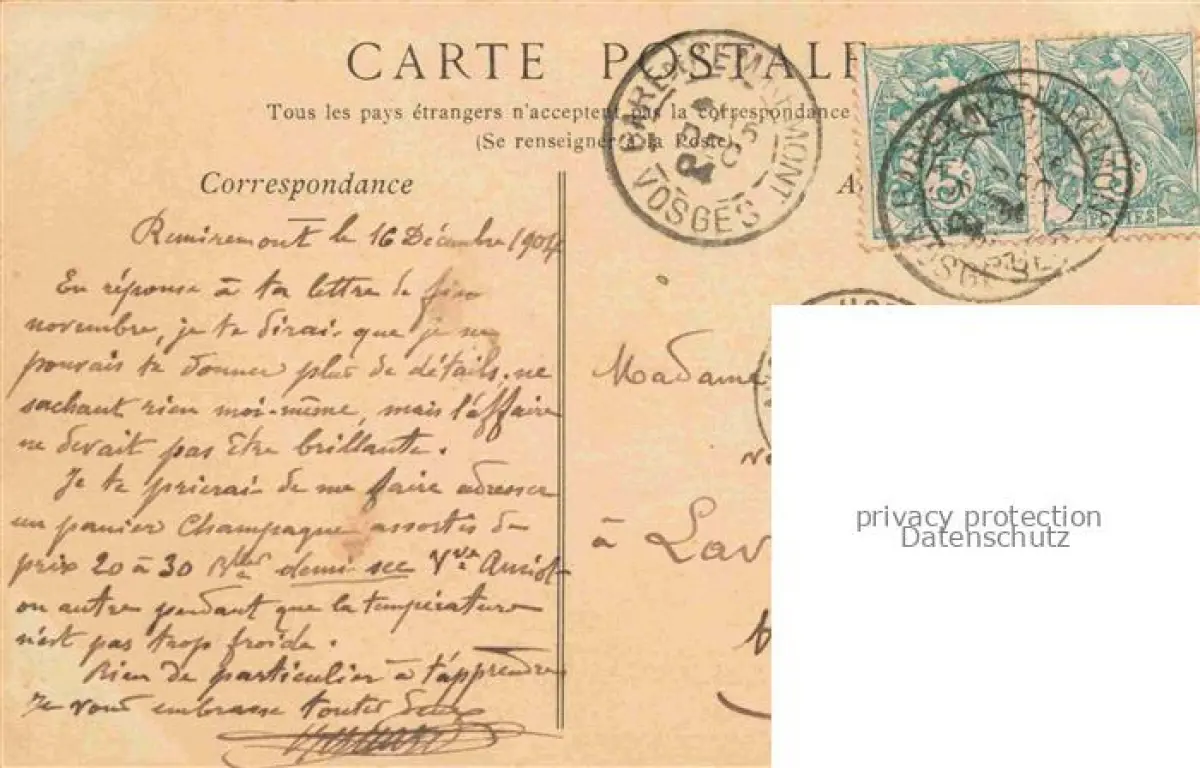 CARTE POSTALE
Tous les pays étrangers n'acceptent pas la correspondance
(Se renseigner à la Poste).
Correspondance
A
REMIREMONT
VOSGES
5
REMIREMONT
VOSGES
POSTES
Remiremont le 16 Décembre 1904
En réponse à ta lettre de fin
novembre, je te dirai que je ne
pouvais te donner plus de détails, ne
sachant rien moi-même, mais l'affaire
ne devait pas être brillante.
Je te prierai de me faire adresser
un panier Champagne assortis de
prix 20 à 30 Blles demi sec Vve Amiot
ou autre pendant que la température
n'est pas trop froide.
Rien de particulier à t'apprendre
Je vous embrasse toutes deux
Madame
à Lav
privacy protection
Datenschutz